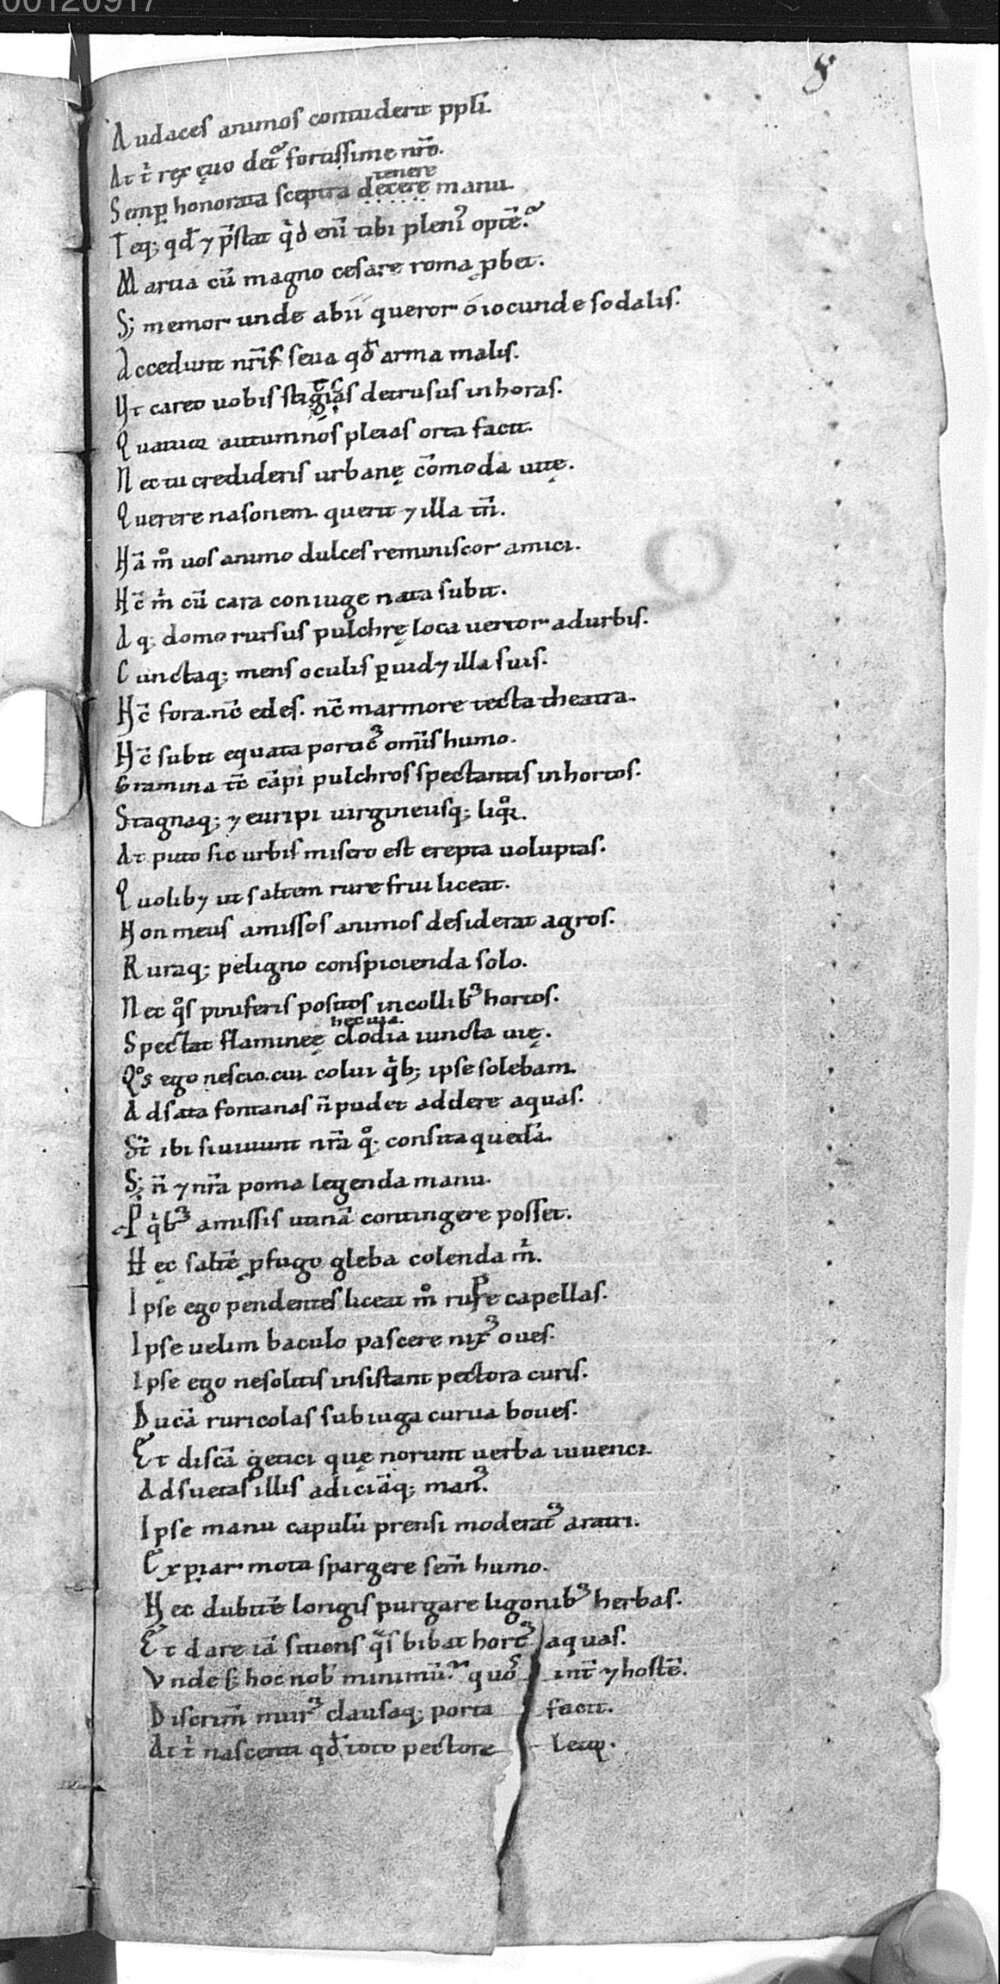 00120917
8
Audaces animos contuderit ppłi.
At t̉ rex ęuo det᷑ fortissime nr̄o.
tenere
Semp̱ honorata sceptra decere manu.
Teq; qđ ⁊ p̄stat qͥd eni̅ tibi pleni᷒ opte̅᷑.
Martia cū magno cesare roma p̱bet.
S; memor unde abii queror ó iocunde sodalis.
Accedunt nr̄is seua qđ arma malis.
Vt careo uobis stigias detrusus in horas.
Quatuor autumnos pleias orta facit.
Nec tu credideris urbanę c̄omoda uitę.
Querere nasonem querit ⁊ illa tn̄.
Nā m̊ uos animo dulces reminiscor amici.
Nc̄ m̉ cū cara coniuge nata subit.
Aq; domo rursus pulchrę loca uertor ad urbis.
Cunctaq; mens oculis ꝑuid⁊ illa suis.
Nc̄ fora. nc̄ edes. nc̄ marmore tecta theatra.
Nc̄ subit equata portic᷒ om̄is humo.
Gramina nc̄ cāpi pulchros spectantis in hortos.
Stagnaq; ⁊ euripi uirgineusq; liqͦr.
At puto sic urbis misero est erepta uoluptas.
Quolib⁊ ut saltem rure frui liceat.
Non meus amissos animos desiderat agros.
Ruraq; peligno conspicienda solo.
Nec qͦs piniferis positos in collib᷒ hortos.
hec uia.
Spectat flamineę clodia iuncta uię.
Qͦs ego nescio. cui colui qͥb; ipse solebam.
Ad sata fontanas n̄ pudet addere aquas.
St̄ ibi si uiuunt nr̄a qͦ; consita quedā.
S; n̄ ⁊ nr̄a poma legenda manu.
P̉ qͥb᷒ amissis utinā contingere posset.
Hęc salte̅ p̱fugo gleba colenda m̉.
Ipse ego pendentes liceat m̊ rupe capellas.
Ipse uelim baculo pascere nix᷒ oues.
Ipse ego ne solitis insistant pectora curis.
Ducā ruricolas sub iuga curua boues.
Et discā getici quę norunt uerba iuuenci.
Adsuetas illis adiciāq; man᷒.
Ipse manu capulū prensi moderat᷒ aratri.
Expiar mota spargere sem̄ humo.
Nec dubite̅ longis purgare ligonib᷒ herbas.
Et dare iā sitiens qͣs bibat hort᷒ aquas.
Vnde s; hoc nob̄ minimū᷑ quos int̄ ⁊ hoste̅.
Discrim̄ mur᷒ clausaq; porta facit.
At t̉ nascenti qđ toto pectore letor.